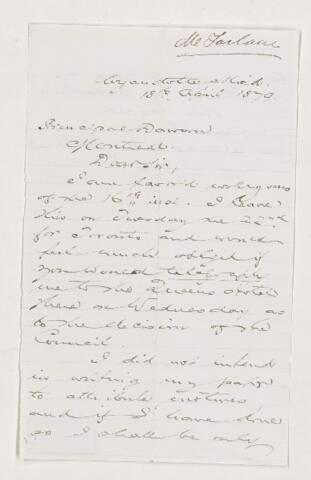 McFarlane
Wyandotte Mich.
18th April 1879
Principal Dawson
Montreal
Dear Sir,
I am favord with yours
of the 16th inst. I leave
this on Tuesday the 22nd
for Toronto and would
feel much obliged if
you would telegraph
me to the Queens Hotel
there on Wednesday as
to the decision of the
Council.
I did not intend
in writing my paper
to attribute
and if I have done
so I shall be only